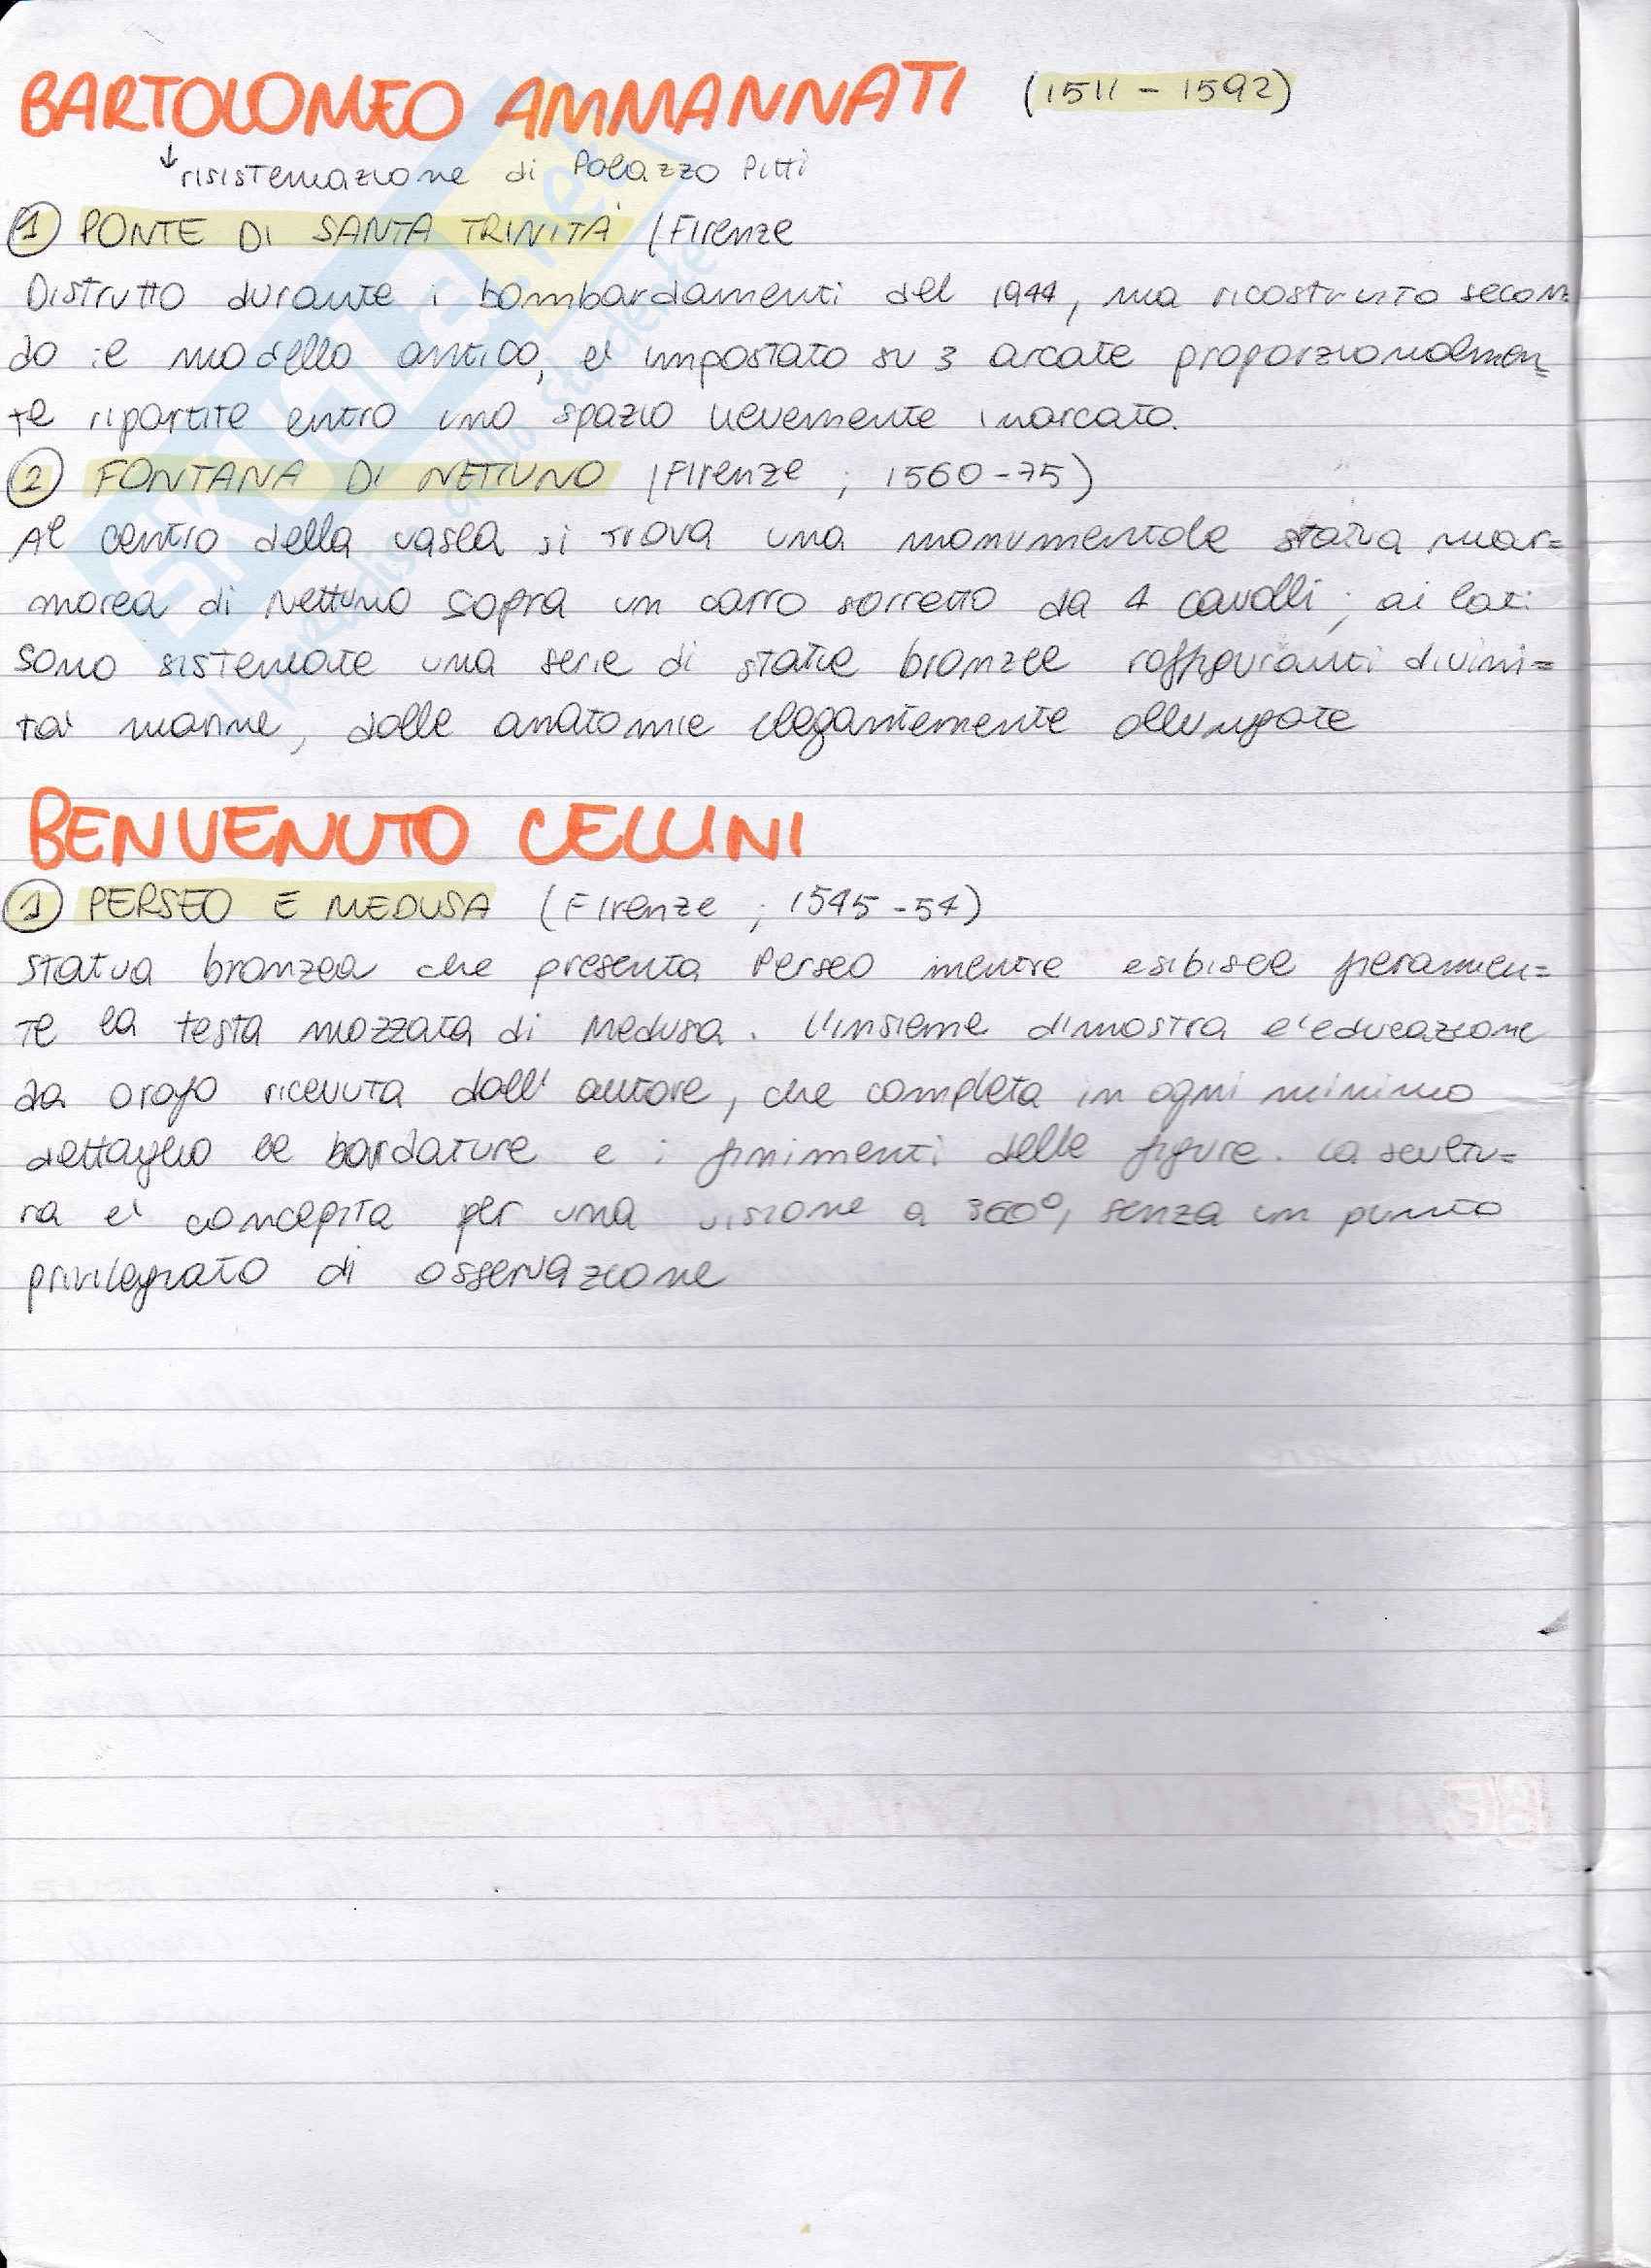 BARTOLOMEO AMMANNATI (1511 - 1592)
↓ risistemazione di Palazzo Pitti
1 PONTE DI SANTA TRINITA' (Firenze
Distrutto durante i bombardamenti del 1944, ma ricostruito secon=
do il modello antico, e' impostato su 3 arcate proporzionalmen=
te ripartite entro uno spazio lievemente inarcato.
2 FONTANA DI NETTUNO (Firenze ; 1560-75)
Al centro della vasca si trova una monumentale statua mar=
morea di Nettuno sopra un carro sorretto da 4 cavalli; ai lati
sono sistemate una serie di statue bronzee raffiguranti divini=
ta' marine, dalle anatomie elegantemente allungate
BENVENUTO CELLINI
1 PERSEO E MEDUSA (Firenze ; 1545-54)
Statua bronzea che presenta Perseo mentre esibisce fieramen=
te la testa mozzata di Medusa. L'insieme dimostra l'educazione
da orafo ricevuta dall'autore, che completa in ogni minimo
dettaglio le bardature e i finimenti delle figure. La scultu=
ra e' concepita per una visione a 360°, senza un punto
privilegiato di osservazione